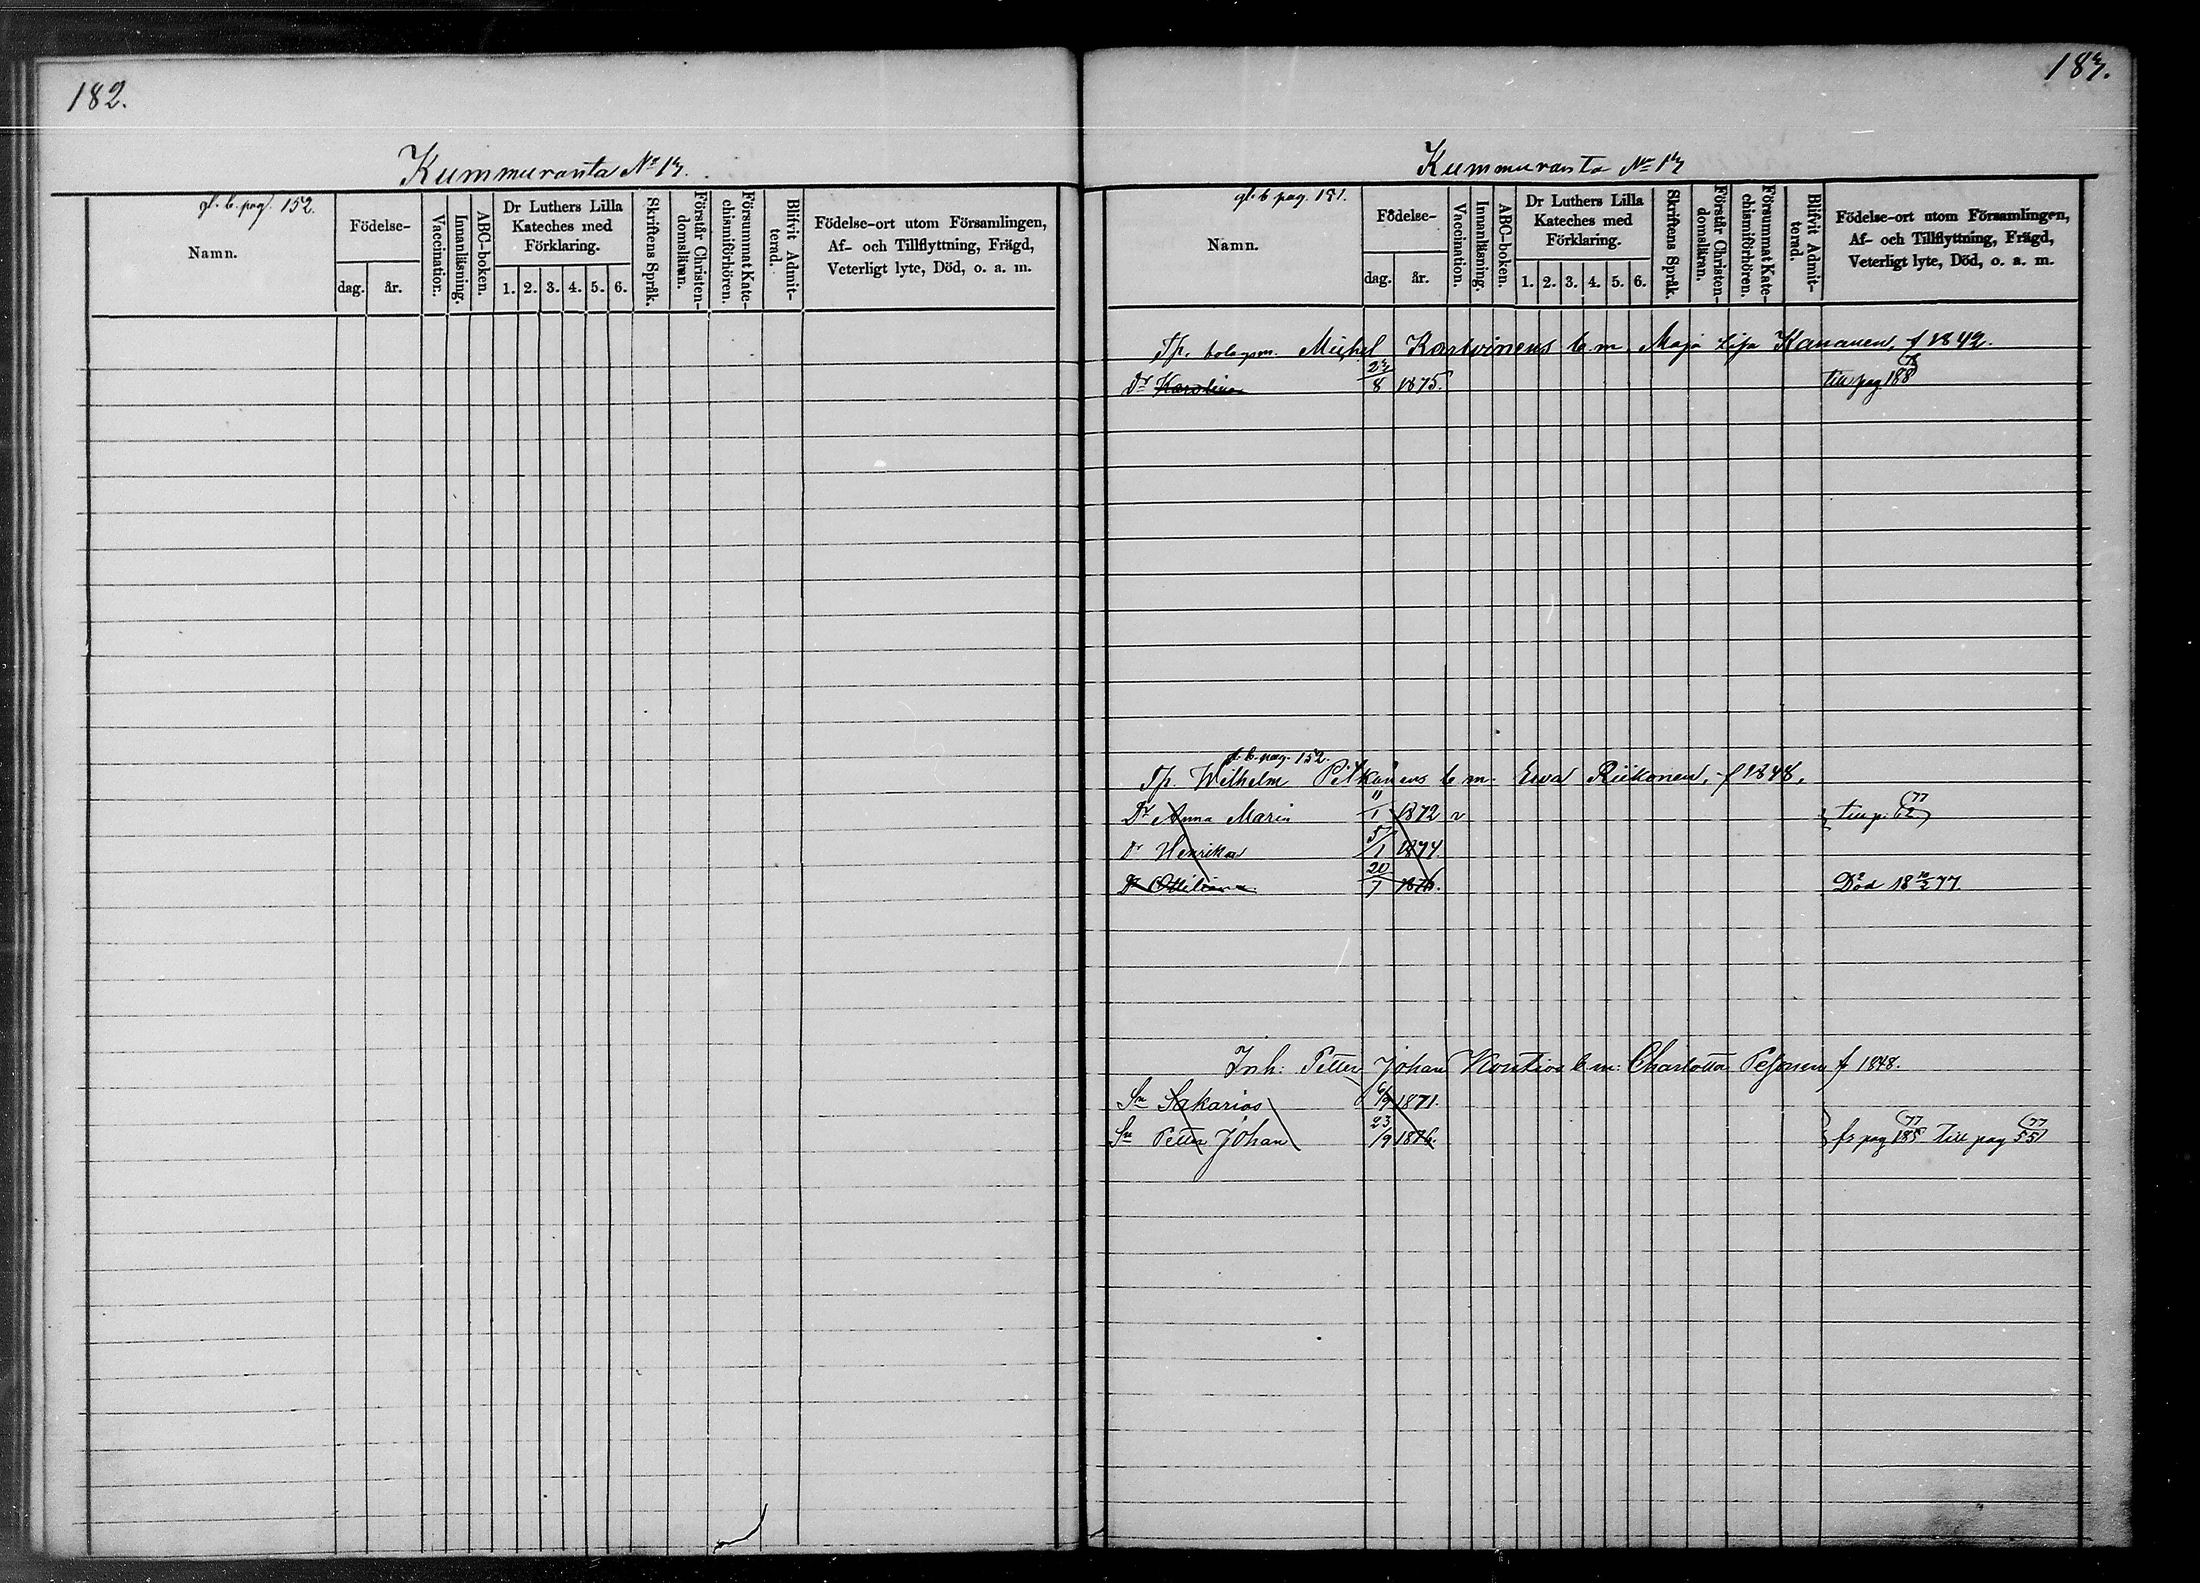 182.
Kummuranta No 13.
gl. b. pag. 152.
Namn.
Födelse-
dag. år.
Vaccination.
Innanläsning.
ABC-boken.
Dr Luthers Lilla Kateches med Förklaring.
1. 2. 3. 4. 5. 6.
Skriftens Språk.
Förstår Christendomsläran.
Försummat Katechismiförhören.
Blifvit Admitterad.
Födelse-ort utom Församlingen, Af- och Tillflyttning, Frägd, Veterligt lyte, Död, o. a. m.
183.
Kummuranta No 13
gl. b pag. 181.
Namn.
Födelse-
dag. år.
Vaccination.
Innanläsning.
ABC-boken.
Dr Luthers Lilla Kateches med Förklaring.
1. 2. 3. 4. 5. 6.
Skriftens Språk.
Förstår Christendomsläran.
Försummat Katechismiförhören.
Blifvit Admitterad.
Födelse-ort utom Församlingen, Af- och Tillflyttning, Frägd, Veterligt lyte, Död, o. a. m.
Tp. bolagsm. Michel Kastinens b. m. Maja Lisa Kananen, f 1842.
Dr Karolina 23/8 1875. till pag 188 78
gl. b. pag. 152.
Tp. Wilhelm Pitkänens b. m. Ewa Riikonen, f 1848.
Dr Anna Maria 11/1 1872 v till p. 62 77
Dr Henrika 5/1 1874.
Dr Ottiliana 20/1 1876. Död 18 10/2 77.
Inh: Petter Johan Kontios b. m: Charlotta Pesonen f 1848.
Sn Sakarias 6/9 1871.
Sn Petter Johan 23/9 1876. fr pag 185 77 till pag 55 77